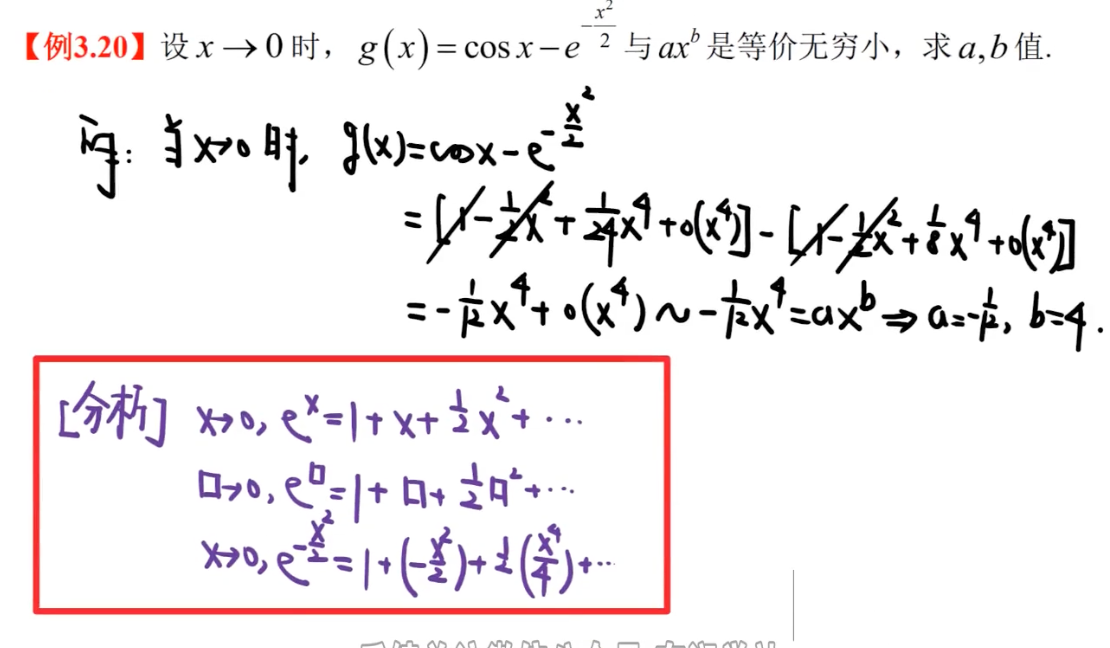 【例3.20】设 x → 0 时，g(x) = cos x − e^{−x²/2} 与 ax^b 是等价无穷小，求 a, b 值.
当x→0时, g(x)=cosx−e^{−x²/2}
=[1−1/2x²+1/24x⁴+o(x⁴)]−[1−1/2x²+1/8x⁴+o(x⁴)]
=−1/12x⁴+o(x⁴)∼−1/12x⁴=ax^b⇒a=−1/12, b=4.
[分析] x→0, e^x=1+x+1/2x²+⋯
□→0, e^□=1+□+1/2□²+⋯
x→0, e^{−x²/2}=1+(−x²/2)+1/2(x⁴/4)+⋯